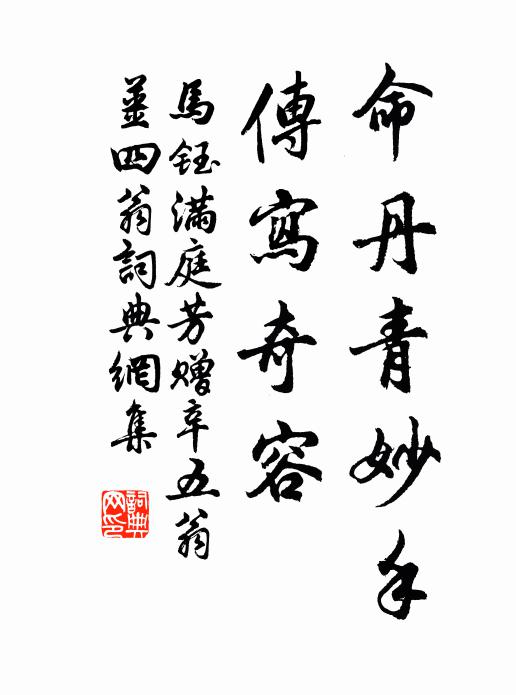 命丹青妙手
傳寫奇容
馬鈺滿庭芳赠辛五翁
薑四翁詞典網集
詞典网印